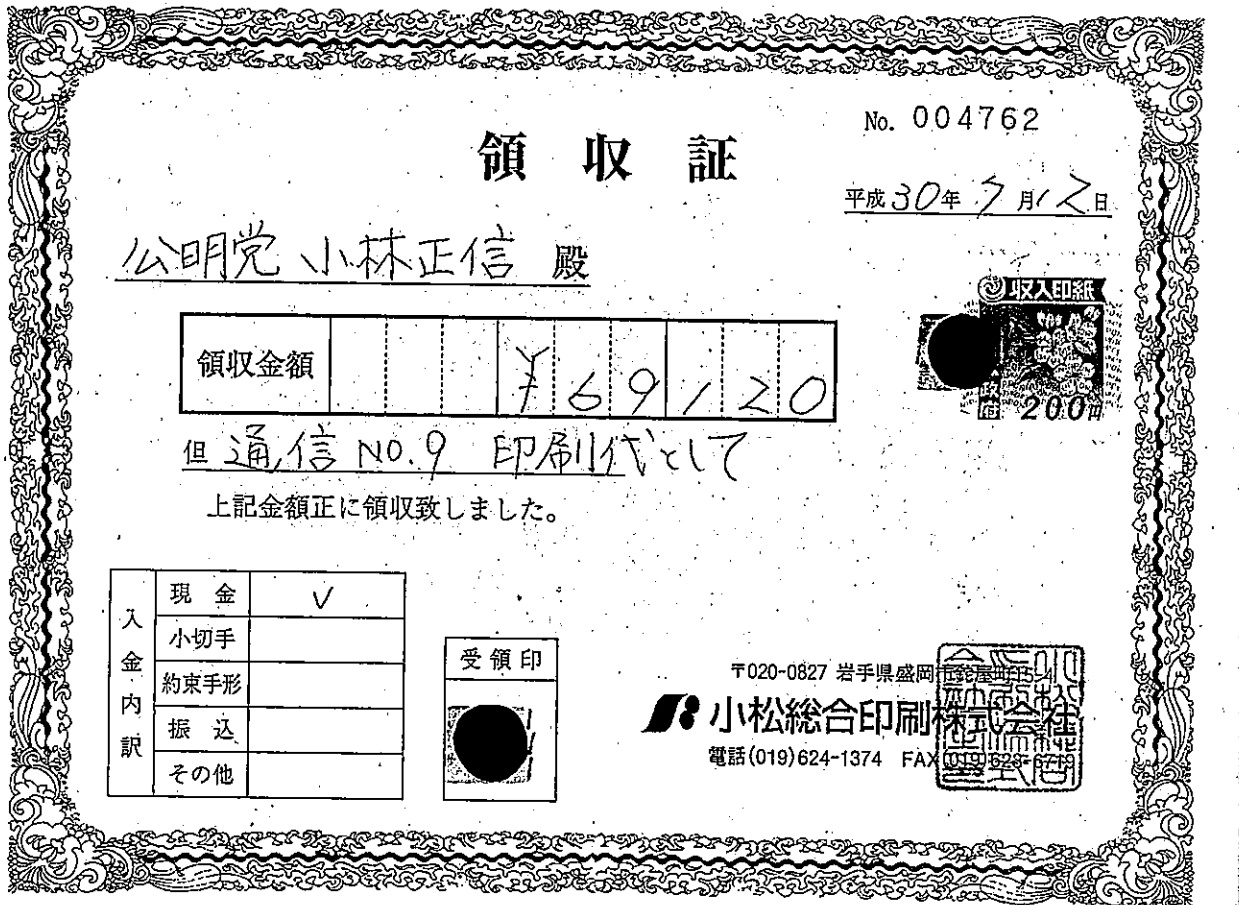 No. 004762
領収証
平成30年7月12日
公明党 小林正信 殿
収入印紙
200円
領収金額 ¥69120
但 通信 NO.9 印刷代として
上記金額正に領収致しました。
入金内訳
現金 ✓
小切手
約束手形
振込
その他
受領印
〒020-0827 岩手県盛岡市鉈屋町15-4
小松総合印刷株式会社
電話(019)624-1374 FAX(019)623-6719